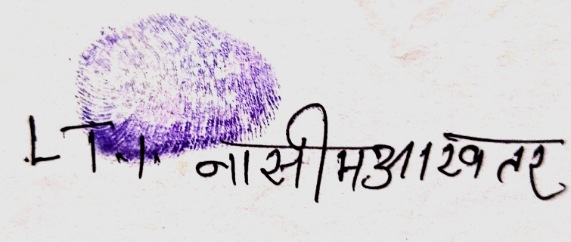 L T. I. नासीमआखतर